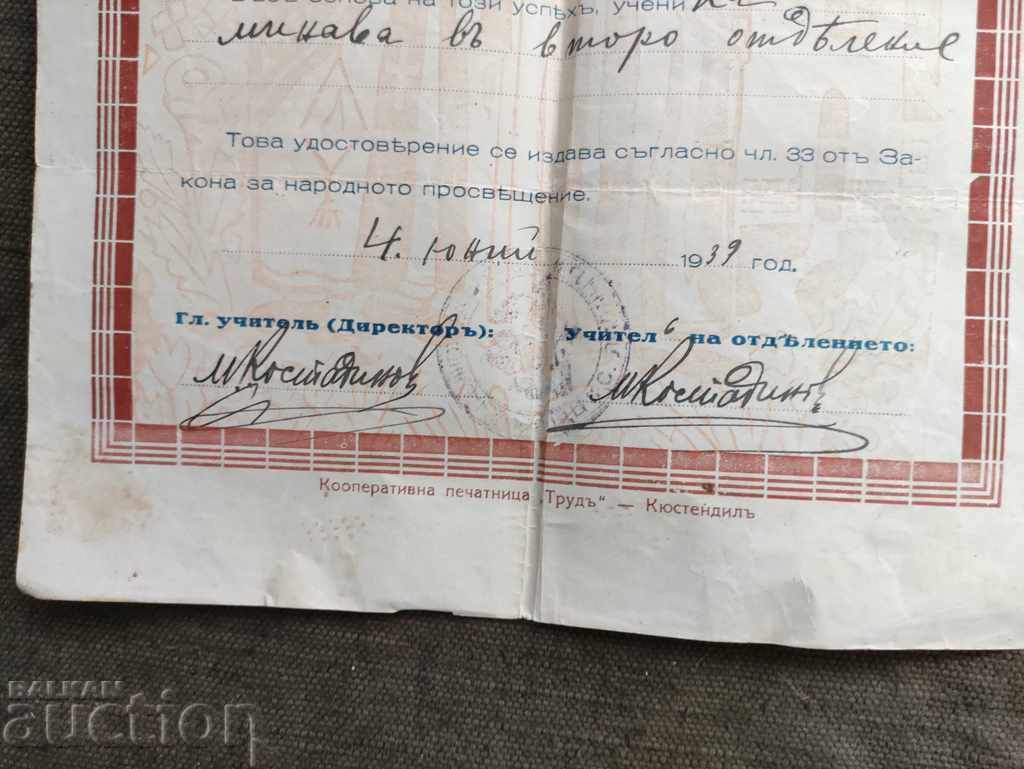 на този успѣхъ, учени
минава въ второ отдѣление
Това удостовѣрение се издава съгласно чл. 33 отъ За-
кона за народното просвѣщение.
4. юний 1939 год.
Гл. учитель (Директоръ): Учител ь на отдѣлението:
М Костадинов М Костадинов
Кооперативна печатница „Трудъ" — Кюстендилъ
BALKAN
auction